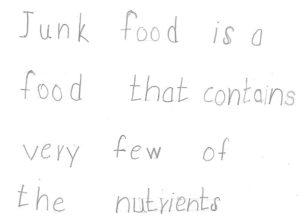 Junk food is a
food that contains
very few of
the nutrients